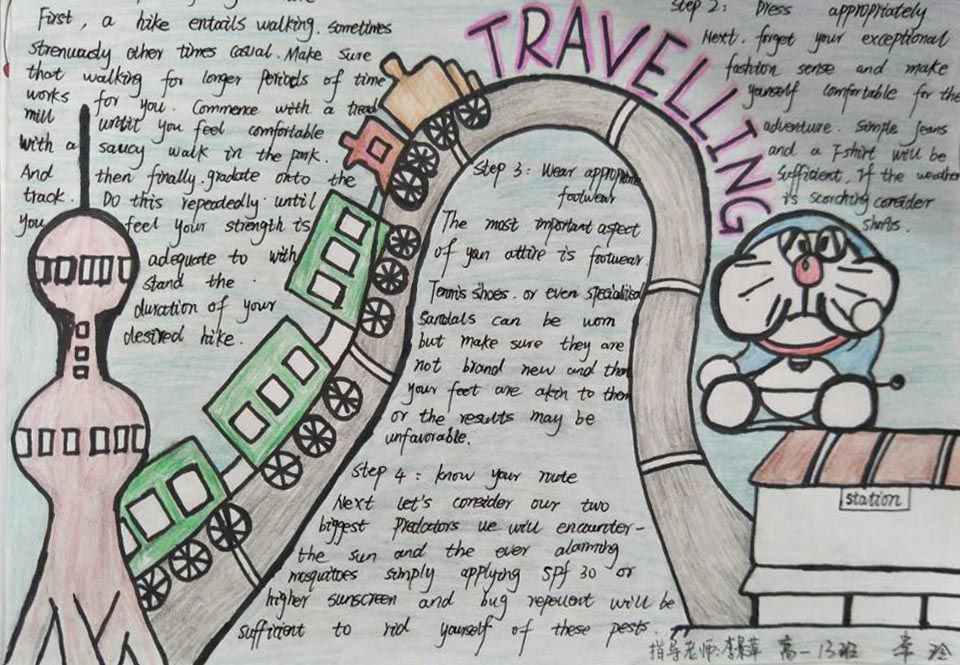 First, a hike entails walking. sometimes
strenuously other times casual. Make sure
that walking for longer periods of time
works for you. Commence with a tread
mill until you feel comfortable
with a saucy walk in the park.
And then finally gradate onto the
track. Do this repeatedly until
you feel your strength is
adequate to with
stand the
duration of your
desired hike.
TRAVELLING
Step 2: Dress appropriately
Next. forget your exceptional
fashion sense and make
yourself comfortable for the
adventure. Simple jeans
and a T-shirt will be
sufficient. If the weather
is scorching consider
shorts.
Step 3: Wear appropriate
footwear
The most important aspect
of your attire is footwear.
Tennis shoes. or even specialised
sandals can be worn
but make sure they are
not brand new and that
your feet are akin to them
or the results may be
unfavorable.
Step 4: know your route
Next let's consider our two
biggest predators we will encounter-
the sun and the ever alarming
mosquitoes simply applying spf 30 or
higher sunscreen and bug repellent will be
sufficient to rid yourself of these pests.
station
指导老师:李 高一13班 李玲